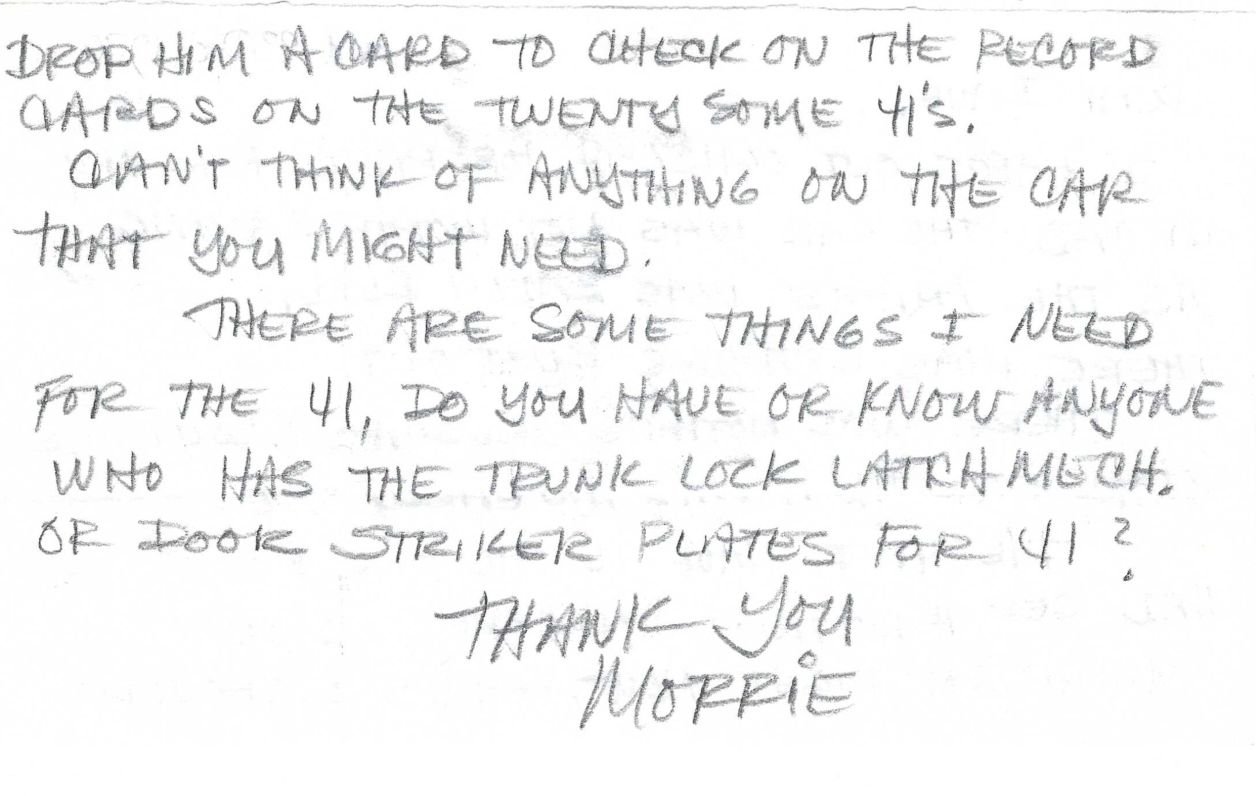 DROP HIM A CARD TO CHECK ON THE RECORD
CARDS ON THE TWENTY SOME 41's.
CAN'T THINK OF ANYTHING ON THE CAR
THAT YOU MIGHT NEED.
THERE ARE SOME THINGS I NEED
FOR THE 41, DO YOU HAVE OR KNOW ANYONE
WHO HAS THE TRUNK LOCK LATCH MECH.
OR DOOR STRIKER PLATES FOR 41?
THANK YOU
MORRIE